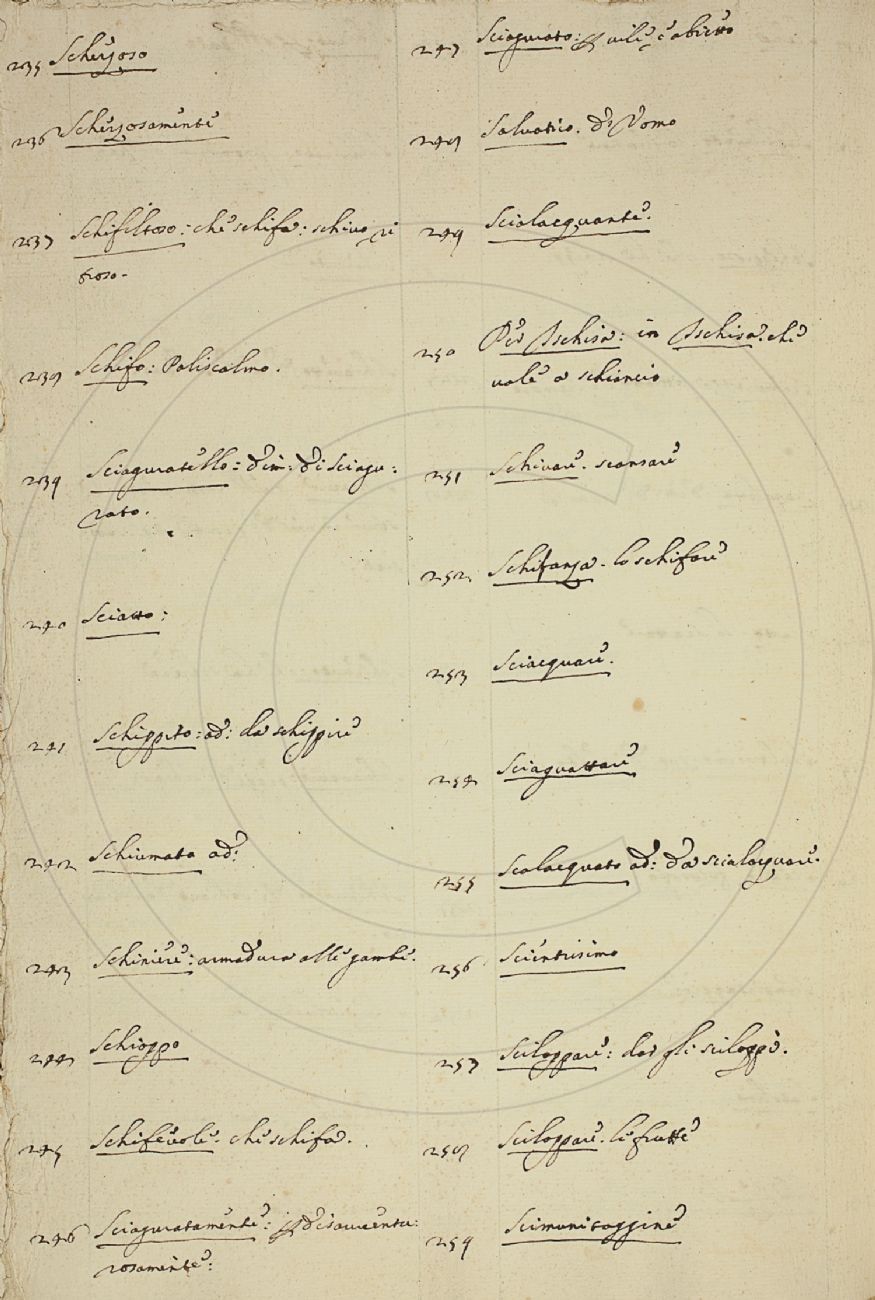 235 Scherzoso
236 Scherzosamente
237 Schifiltoso: che schifa: schivo, ri
troso.
238 Schifo: Paliscalmo.
239 Sciaguratello: dim: di Sciagu:
rato.
240 Sciatto:
241 Schippito: ad: da schippire
242 Schiumato ad:
243 Schiniere: armadura alle gambe.
244 Schioppo
245 Schifevole. che schifa.
246 Sciaguratamente: p disaventu:
rosamente:
247 Sciagurato: p vile, e abietto
248 Salvatico. di Uomo
249 Scialacquante.
250 Per Ischisa: in Ischisa. che
vale a schiancio
251 Schivare. scansare
252 Schifanza. lo schifare
253 Sciacquare.
254 Sciaguattare
255 Scalacquato ad: da scialacquare.
256 Scientissimo
257 Sciloppare: dar gli sciloppi.
258 Sciloppare. le frutte
259 Scimunitaggine